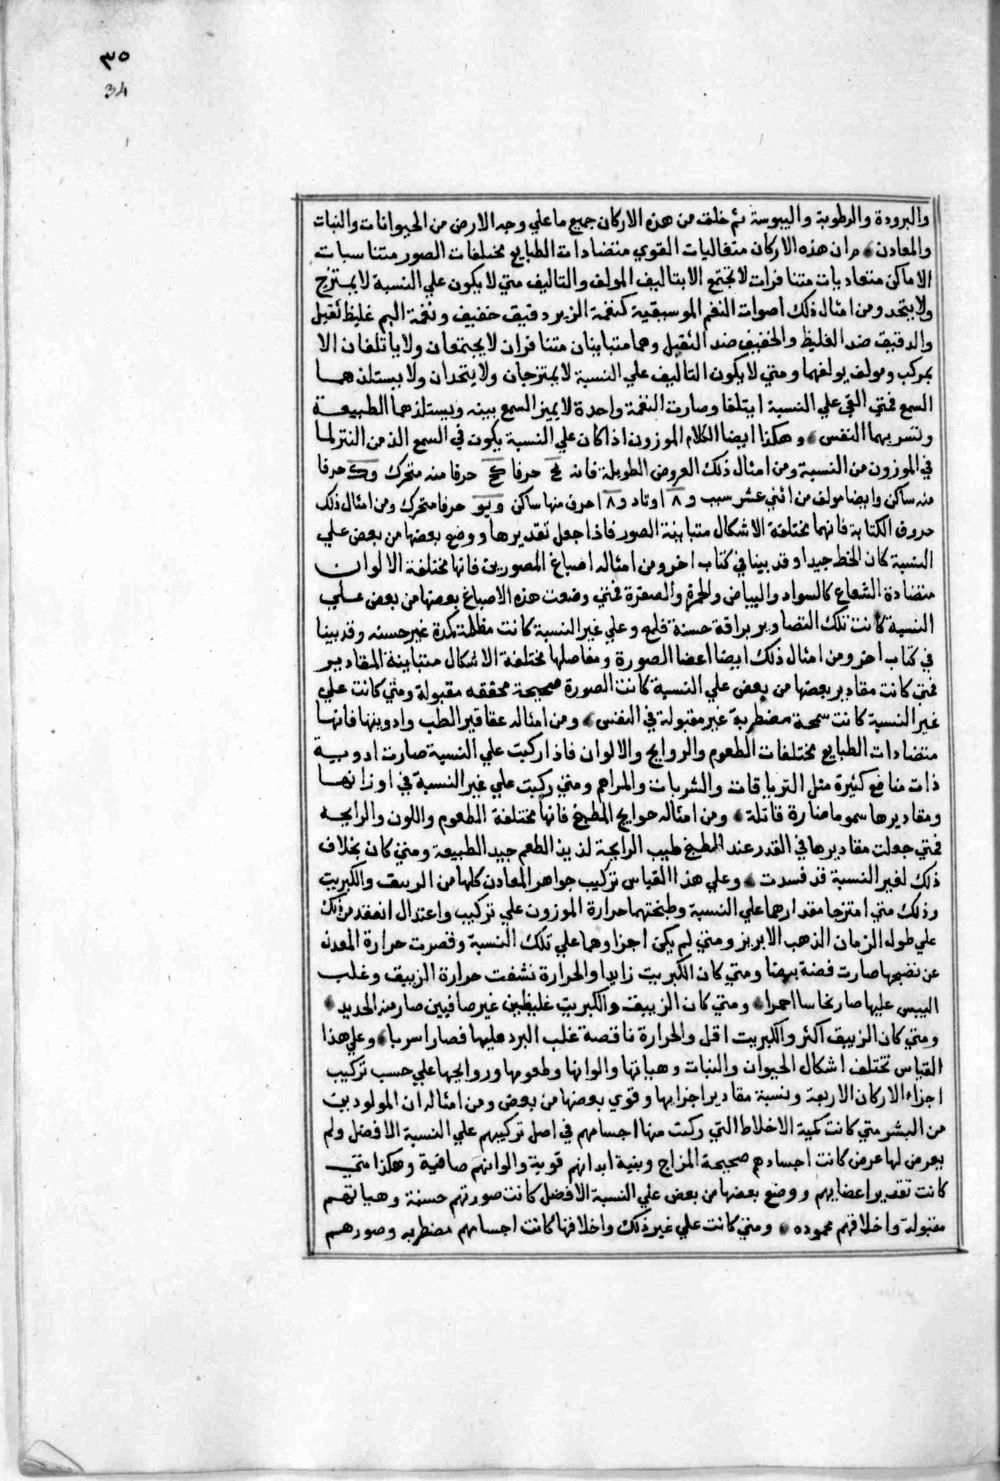 ٣٥
34
والبرودة والرطوبة واليبوسة ثم خلق من هذه الاركان جميع ما علي وجه الارض من الحيوانات والنبات
والمعادن ان هذه الاركان متغاليات القوي متضادات الطبايع مختلفات الصور متناسبات
الاماكن متعاديات متنافرات لا تجتمع الا بتاليف المولف والتاليف متي لا يكون علي النسبة لا يمتزج
ولا يتحد ومن امثال ذلك اصوات النغم الموسيقية كنغمة الزير دقيق خفيف ونغمة البم غليظ ثقيل
والدقيق ضد الغليظ والخفيف ضد الثقيل وهما متباينان متنافران لا يجتمعان ولا ياتلفان الا
بمركب ومولف يولفهما ومتي لا يكون التاليف علي النسبة لا يمتزجان ولا يتحدان ولا يستلذهما
السمع فمتي الفي علي النسبة ايتلفا وصارت النغمة واحدة لا يميز السمع بينه ويستلذهما الطبيعة
وتسر بهما النفس وهكذا ايضا الكلام الموزون اذا كان علي النسبة يكون في السمع الذ من النثر لما
في الموزون من النسبة ومن امثال ذلك العروض الطويلة فانه حرفا حرفا منه متحرك و حرفا
منه ساكن وايضا مولف من اثني عشر سبب و ٨ اوتاد و ٨ احرف منها ساكن و حرفا متحرك ومن امثال ذلك
حروف الكتابة فانهما مختلفة الاشكال متباينة الصور فاذا جعل تقديرها ووضع بعضها من بعض علي
النسبة كان الخط جيدا وقد بينا في كتاب اخر ومن امثاله اصباغ المصورين فانها مختلفة الالوان
متضادة الشعاع كالسواد والبياض والحمرة والصفرة فمتي وضعت هذه الاصباغ بعضها من بعض علي
النسبة كانت تلك التصاوير براقة حسنة تلمع وعلي غير النسبة كانت مظلمة كمدة غير حسنه وقد بينا
في كتاب اخر ومن امثال ذلك ايضا اعضا الصورة ومفاصلها مختلفة الاشكال متباينة المقادير
فمتي كانت مقادير بعضها من بعض علي النسبة كانت الصورة صحيحة محققه مقبولة ومتي كانت علي
غير النسبة كانت سمجة مضطربة غير مقبولة في النفس ومن امثاله عقاقير الطب وادويتها فانها
متضادات الطبايع مختلفات الطعوم والروايح والالوان فاذا ركبت علي النسبة صارت ادوية
ذات منافع كثيرة مثل الترياقات والشربات والمراهم ومتي ركبت علي غير النسبة في اوزانها
ومقاديرها سموما ضارة قاتلة ومن امثاله حوايج الطبخ فانها مختلفة الطعوم واللون والرايحه
فمتي جعلت مقاديرها في القدر عند الطبخ طيب الرايحة لذيذ الطعم جيد الطبيعة ومتي كان بخلاف
ذلك لغير النسبة قد فسدت وعلي هذا القياس تركيب جواهر المعادن كلها من الزيبق والكبريت
وذلك متي امتزجا مقدارهما علي النسبة وطبختهما حرارة الموزون علي تركيب واعتدال انعقد من ذلك
علي طول الزمان الذهب الابريز ومتي لم يكن اجزاوهما علي تلك النسبة وقصرت حرارة المعدن
عن نضجها صارت فضة بيضا ومتي كان الكبريت زايدا والحرارة نشفت حرارة الزيبق وغلب
اليبس عليها صار نحاسا احمرا ومتي كان الزيبق والكبريت غليظين غير صافيين صار منه الحديد
ومتي كان الزيبق اكثر والكبريت اقل والحرارة ناقصة غلب البرد عليها فصار اسربا وعلي هذا
القياس تختلف اشكال الحيوان والنبات وهياتها والوانها وطعومها وروايحها علي حسب تركيب
اجزاء الاركان الاربعة ونسبة مقادير اجزايها وقوي بعضها من بعض ومن امثاله ان المولودين
من البشر متي كانت كمية الاخلاط التي ركبت منها اجسامهم في اصل تركيبهم علي النسبة الافضل ولم
يعرض لها عرض كانت اجسادهم صحيحة المزاج وبنية ابدانهم قوية والوانهم صافية وهكذا متي
كانت تقدير اعضايهم ووضع بعضها من بعض علي النسبة الافضل كانت صورتهم حسنة وهياتهم
مقبولة واخلاقهم محموده ومتي كانت علي غير ذلك واخلافها كانت اجسامهم مضطربه وصورهم